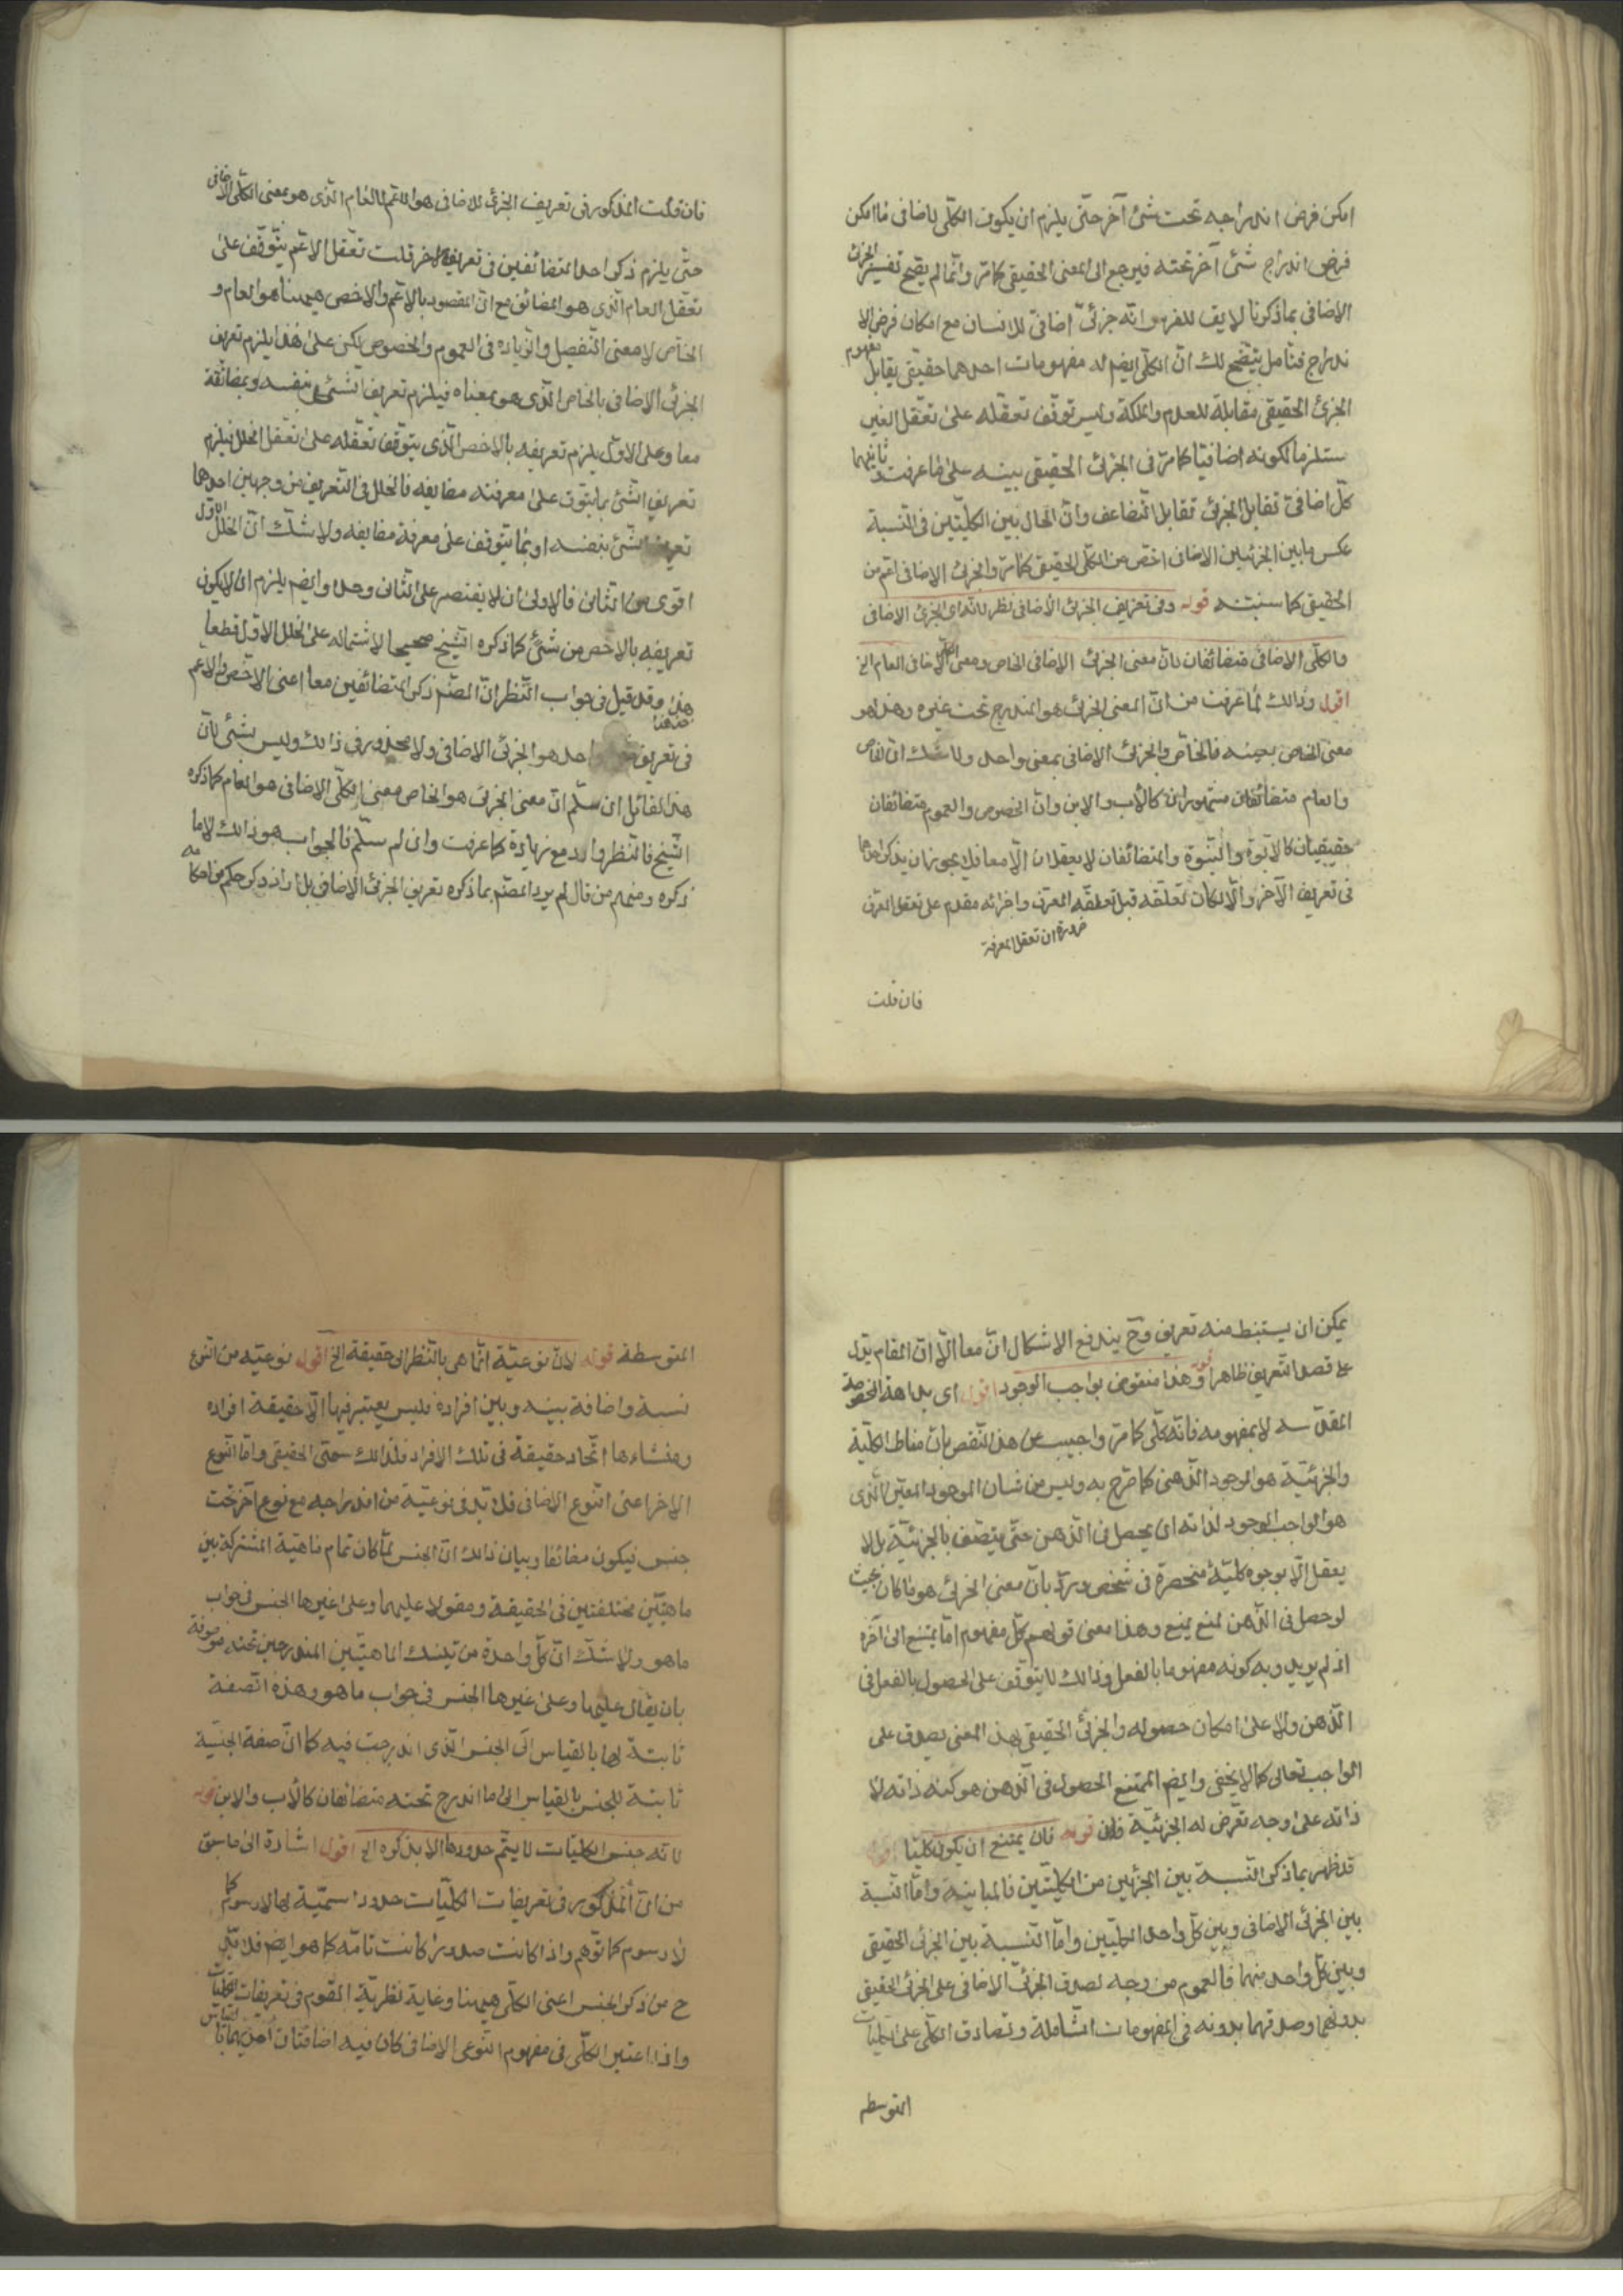 امكن فرض اندراجه تحت شئ آخر حتى يلزم ان يكون الكلّى الاضافى ما امكن
فرض اندراج شئ آخر تحته فيرجع الى المعنى الحقيقى كما مرّ وانّما لم يصح تفسير الجزئ
الاضافى بما ذكرنا لا يق للفرس انّه جزئىّ اضافىّ للانسان مع امكان فرض الا
ندراج فتأمل يتّضح لك انّ الكلّى ايضم له مفهومات احدهما حقيقى يقابل مفهوم
الجزئ الحقيقى مقابلة للعدم والملكة وليس توقّف تعقّله على تعقّل الغير
ستلزما لكونه اضافيّا كما مرّ فى الجزئ الحقيقى بينه على ما عرفت وثانيهما
كلّ اضافىّ تقابل الجزئ تقابل التضاعف وانّ الحال بين الكليّتين فى النّسبة
عكس ما بين الجزئيين الاضافى اخصّ من الكلّى الحقيقى كما مرّ والجزئ الاضافى اعم من
الحقيقى كما سنبيّنه قوله وفى تعريف الجزئ الاضافى نظر لانّه اى الجزئ الاضافى
والكلّى الاضافى متضائفان لانّ معنى الجزئ الاضافى الخاص ومعنى الكلّى الاضافى العام الخ
اقول وذالك لما عرفت من انّ المعنى الجزئ هو المندرج تحت غيره وهذا هو
معنى الخاص بعينه فالخاصّ والجزئ الاضافى بمعنى واحد ولا شك انّ الخاص
والعام متضائفان مشهوران كالأب والابن وانّ الخصوص والعموم متضائفان
حقيقيان كالابّوة والبنّوة والمتضائفان لا يعقلان الّا معا فلا يجوز ان يذكر احدهما
فى تعريف الآخر والّا لكان تعقّله قبل تعقّله المعرّف واجزائه مقدم على تعقل المعرّف
ضرورة ان تعقل المعرفة
فان قلت
فان قلت المذكور فى تعريف الجزئ الاضافى هو الاعمّ لا العام الّذى هو بمعنى الكلّى الاضافى
حتّى يلزم ذكر احد المتضائفين فى تعريف الآخر قلت تعّقل الاعم يتّوقّف على
تعقّل العام الّذى هو المضائق مع انّ المقصود بالاعّم والاخص هيهنا هو العام و
الخاّص لا معنى التّفصيل والزياده فى العموم والخصوص لكن على هذا يلزم تعريف
الجزئ الاضافى بالخاص الّذى هو بمعناه فيلزم تعريف الشّئ بنفسه وبمضائفه
معا وعلى الاوّل يلزم تعريفه بالاخص الّذى يتوّقف تعّقله على تعّقل الخاص فيلزم
تعريف الشّئ بما يتوقف على معرفته مضايفه فالخلل فى التّعريف من وجهين احدهما
تعريف الشّئ بنفسه او بما يتوقف على معرفة مضايفه ولا شكّ انّ الخلل الاوّل
اقوى من الثّانى فالاولى ان لا يقتصر على الثّانى وحده وايضم يلزم ان لا يكون
تعريفه بالاخص من شئ كما ذكره الشّيخ صحيحا لاشتماله على الخلل الاوّل قطعا
هذا وقد قيل فى جواب النّظر انّ المصّنم ذكر المتضائفين معا اعنى الاخصّ والاعّم
فى تعريف واحد هو الجزئ الاضافى ولا محذور فى ذالك وليس بشئ لانّ
هذا القائل ان سلّم انّ معنى الجزئ هو الخاص معنى الكلّى الاضافى هو العام كما ذكره
الشّيخ فالنّظر وارد مع زيادة كما عرفت وان لم سلّم فالجواب هو ذالك لا ما
ذكره ومنهم من قال لم يرد المصّم بما ذكره تعريف الجزئ الاضافى بل اراد ذكر حكم من احكامه
يمكن ان يستنبط منه تعريف وح يندفع الاشكال انّ معا الّا ان المقام يدّل
على قصد التعريف ظاهرا قوله وهذا منقوض بواجب الوجود اقول اى بداهة المخصوصة
المقدّسه لا بمفهومه فانّه كلّى كما مرّ واجيب عن هذا النّقص بانّ مناط الكليّة
والجزئيّة هو الوجود الذّهنى كما صّرح به وليس من شان الموجود المعيّن الّذى
هو الواجب الوجود لذاته ان يحصل فى الذّهن حتّى يتّصف بالجزئيّة بل لا
يعقل الّا بوجوه كليّة منحصرة فى شخص وردّ بانّ معنى الجزئ هو ما كان بحيث
لو حصل فى الذّهن لمنع يمنع وهذا معنى قولهم كلّ مفهوم امّا يمتنع الى آخره
اذ لم يريدو به كونه مفهوما بالفعل وذالك لا يتوّقف على الحصول بالفعل فى
الذّهن ولا على امكان حصوله والجزئّ الحقيقى بهذا المعنى يصدق على
الواجب تعالى كما لا يخفى وايضم الممتنع الحصول فى الذّهن هو كنه ذاته لا
ذاته على وجه تعّرض له الجزئيّة قوله فان يمتنع ان يكون كليّا اقول
قد ظهر بما ذكر النّسبة بين الجزئيّن من الكليّتين فالمباينة وامّا النّسبة
بين الجزئ الاضافى وبين كلّ واحد الكليّين وامّا النّسبة بين الجزئ الحقيقى
وبين كلّ واحد منهما فالعموم من وجه لصدق الجزئّ الاضافى على الجزئ الحقيقى
بدونهما وصدقهما بدونه فى المفهومات الشّاملة وتصادق الكلّى على الكليّات
المتوسطه
المتوسطة قوله لانّ نوعيّة انّما هى بالنّظر الى حقيقة الخ اقول نوعيّه من النّوع
نسبة واضافة بينه وبين افراده فليس يعتبر فيها الّا حقيقة افراده
ومنشاءها اتّحاد حقيقة فى تلك الافراد فلذالك سمّى الحقيقى وامّا النّوع
الاخر اعنى النّوع الاضافى فلا بّد فى نوعيّة من اندراجه مع نوع آخر تحت
جنس فيكون مضائفا وبيان ذالك انّ الجنس لمّا كان تمام ماهيّة المشتركة بين
ماهيّتين مختلفتين فى الحقيقة ومقولا عليهما وعلى غيرها الجنس فى جواب
ماهو ولا شكّ انّ كلّ واحدة من تينك الماهيّتين المندرجين تحته موصوفة
بان يقال عليها وعلى غيرها الجنس فى جواب ماهو وهذه الصّفة
ثابتة لها بالقياس الى الجنس الّذى اندرجت فيه كما انّ صفة الجنسيّة
ثابتة للجنس بالقياس الى ما اندرج تحته متضائفان كالأب والابن قوله
لانّه جنس الكليّات لا يتّم حدودها الا بذكره الخ اقول اشارة الى ما سبق
من انّ المذكور فى تعريفات الكليّات حدودا سميّة لها لا رسوم كما
لا رسوم كما توّهم واذا كانت حدودرا كانت تامّه كما هو ايضم فلا بّد
ح من ذكر الجنس اعنى الكلّى هيهنا وغاية نظريّة المقوم فى تعريفات الكليّات
واذا اعتبر الكلّى فى مفهوم النّوعى الاضافى كان فيه اضافتان احديهما بالقياس